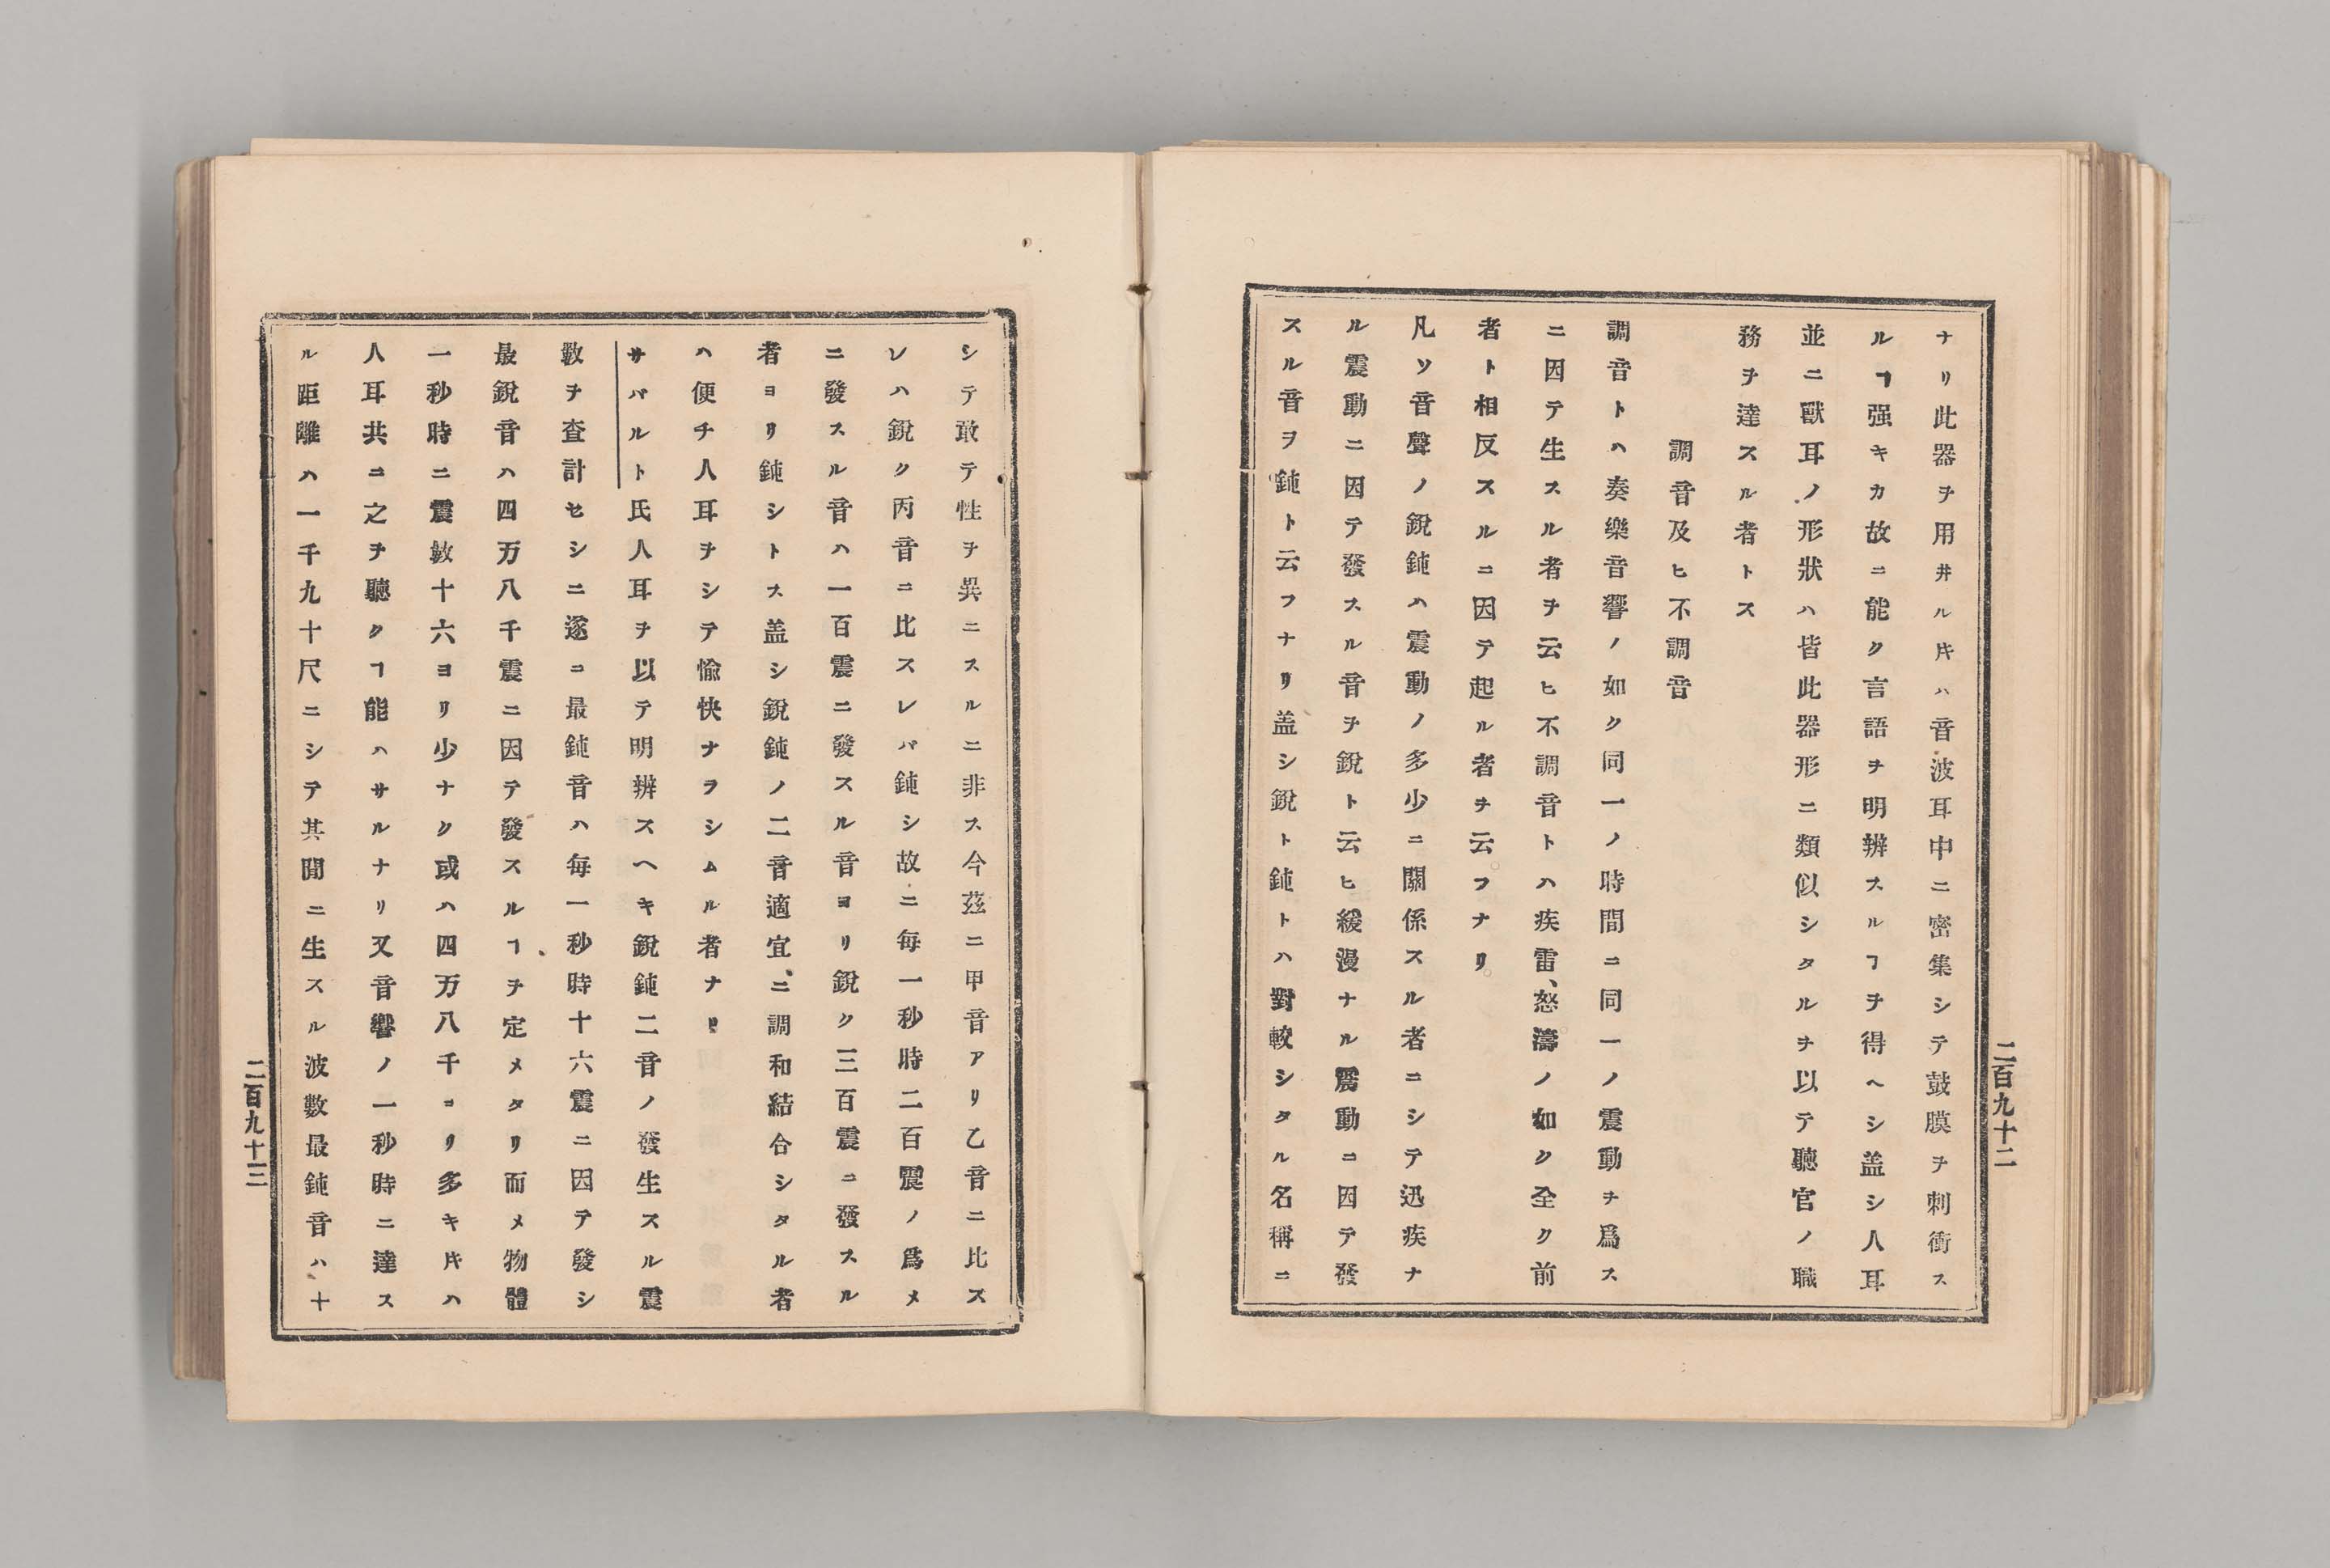 ナリ此器ヲ用井ル𪜈ハ音波耳中ニ密集シテ鼓膜ヲ刺衝ス
ルヿ强キカ故ニ能ク言語ヲ明辨スルヿヲ得ヘシ盖シ人耳
並ニ獸耳ノ形狀ハ皆此器形ニ類似シタルヲ以テ聽官ノ職
務ヲ達スル者トス
調音及ヒ不調音
調音トハ奏樂音響ノ如ク同一ノ時間ニ同一ノ震動ヲ爲ス
ニ因テ生スル者ヲ云ヒ不調音トハ疾雷、怒濤ノ如ク全ク前
者ト相反スルニ因テ起ル者ヲ云フナリ。
凡ソ音聲ノ銳鈍ハ震動ノ多少ニ關係スル者ニシテ迅疾ナ
ル震動ニ因テ發スル音ヲ銳ト云ヒ緩漫ナル震動ニ因テ發
スル音ヲ鈍ト云フナリ盖シ銳ト鈍トハ對較シタル名稱ニ
二百九十二
シテ敢テ性ヲ異ニスルニ非ス今茲ニ甲音アリ乙音ニ比ス
レハ銳ク丙音ニ比スレバ鈍シ故ニ每一秒時二百震ノ爲メ
ニ發スル音ハ一百震ニ發スル音ヨリ銳ク三百震ニ發スル
者ヨリ鈍シトス盖シ銳鈍ノ二音適宜ニ調和結合シタル者
ハ便チ人耳ヲシテ愉快ナヲシムル者ナリ
サバルト氏人耳ヲ以テ明辨スヘキ銳鈍二音ノ發生スル震
數ヲ査計セシニ逐ニ最鈍音ハ每一秒時十六震ニ因テ發シ
最銳音ハ四万八千震ニ因テ發スルヿヲ定メタリ而メ物體
一秒時ニ震數十六ヨリ少ナク或ハ四万八千ヨリ多キ𪜈ハ
人耳共ニ之ヲ聽クヿ能ハサルナリ又音響ノ一秒時ニ達ス
ル距離ハ一千九十尺ニシテ其間ニ生スル波數最鈍音ハ十
二百九十三